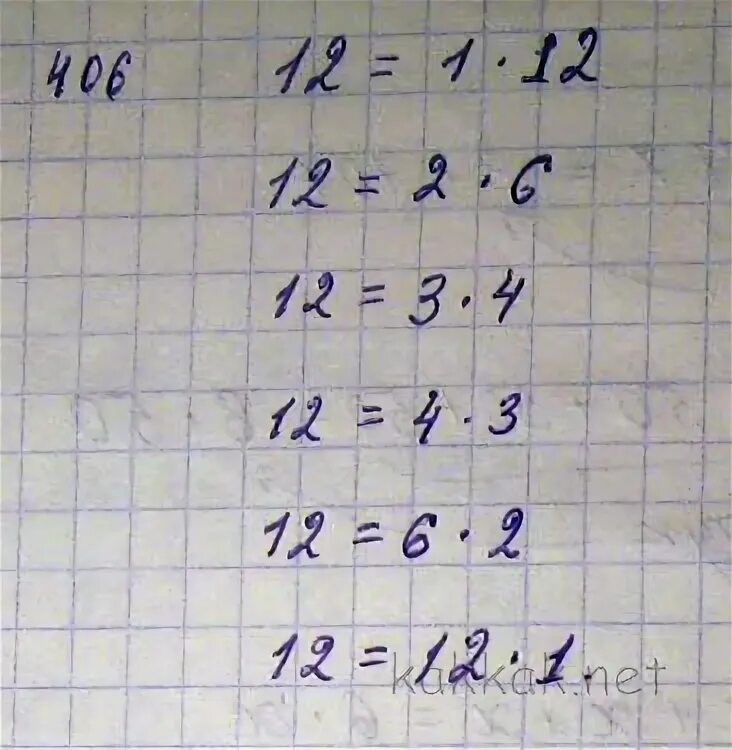 406 12 = 1 · 12
12 = 2 · 6
12 = 3 · 4
12 = 4 · 3
12 = 6 · 2
12 = 12 · 1
kakkak.net